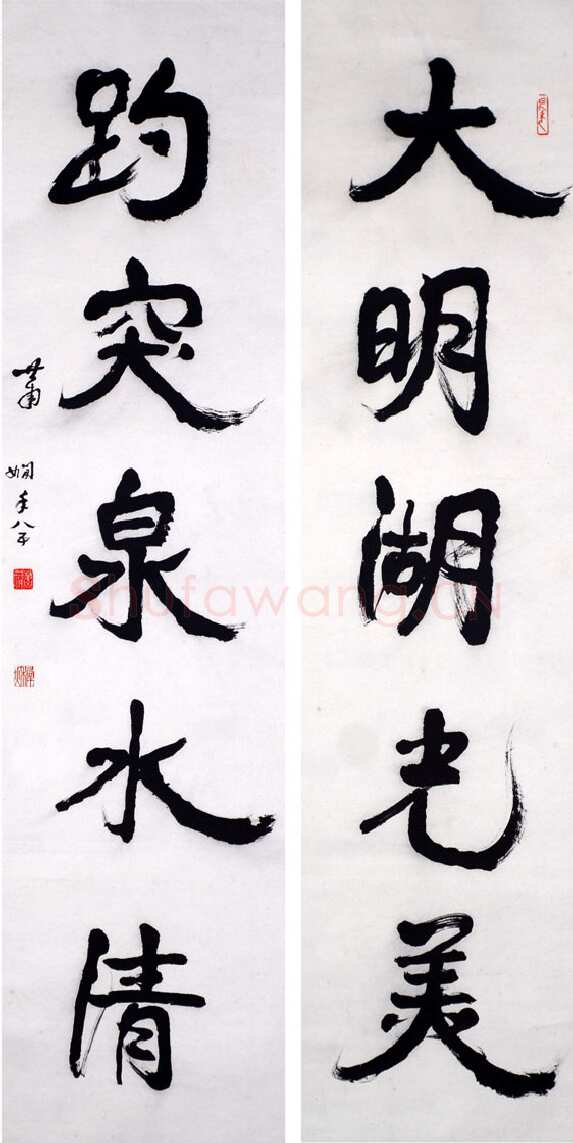 大明湖光美
趵突泉水清
萧娴年八十
Shufawang.CN